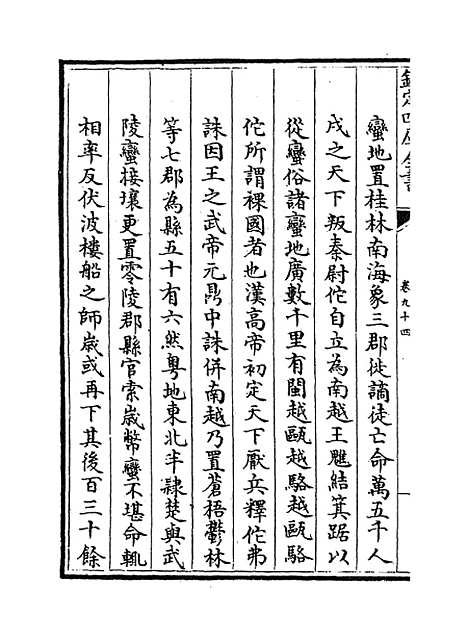 欽定四庫全書
卷九十四
蠻地置桂林南海象三郡徙謫徒亡命萬五千人
戍之天下叛秦尉佗自立為南越王魋結箕踞以
從蠻俗諸蠻地廣數千里有閩越甌越駱越甌駱
佗所謂裸國者也漢高帝初定天下厭兵釋佗弗
誅因王之武帝元鼎中誅併南越乃置蒼梧鬱林
等七郡為縣五十有六然粤地東北半隸楚與武
陵蠻接壤更置零陵郡縣官索歲幣蠻不堪命輒
相率反伏波樓船之師歲或再下其後百三十餘